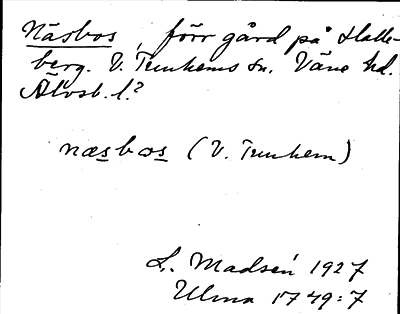 Näsbos, förr gård på Halle-
berg. V. Tunhems sn. Väne hd.
Älvsb. l.?
næsbos (V. Tunhem)
L. Madsén 1927
Ulma 1749:7